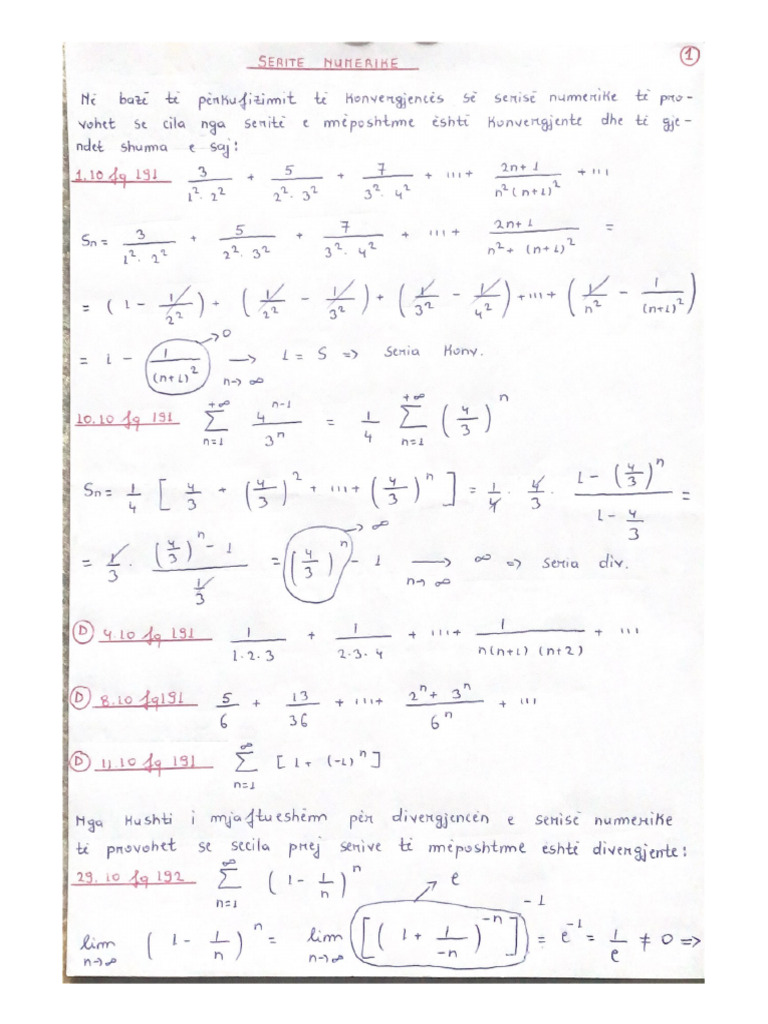 SERITË NUMERIKE
1
Në bazë të përkufizimit të konvergjencës së serisë numerike të pro-
vohet se cila nga seritë e mëposhtme është konvergjente dhe të gje-
ndet shuma e saj:
1.10 fq 191 3/(1²·2²) + 5/(2²·3²) + 7/(3²·4²) + ... + (2n+1)/(n²(n+1)²) + ...
Sn = 3/(1²·2²) + 5/(2²·3²) + 7/(3²·4²) + ... + (2n+1)/(n²+(n+1)²) =
= (1 - 1/2²) + (1/2² - 1/3²) + (1/3² - 1/4²) + ... + (1/n² - 1/(n+1)²)
= 1 - 1/(n+1)² → 0 ⟶ n→∞ 1 = S => Seria Konv.
10.10 fq 191 +∞ ∑ n=1 4^(n-1)/3^n = 1/4 +∞ ∑ n=1 (4/3)^n
Sn = 1/4 [4/3 + (4/3)² + ... + (4/3)^n] = 1/4 · 4/3 · (1-(4/3)^n)/(1-4/3) =
= 1/3 · ((4/3)^n - 1)/(1/3) = (4/3)^n → ∞ - 1 ⟶ n→∞ ∞ => Seria div.
D 4.10 fq 191 1/(1·2·3) + 1/(2·3·4) + ... + 1/(n(n+1)(n+2)) + ...
D 8.10 fq 191 5/6 + 13/36 + ... + (2^n+3^n)/6^n + ...
D 11.10 fq 191 ∞ ∑ n=1 [1+(-1)^n]
Nga kushti i mjaftueshëm për divergjencën e serisë numerike
të provohet se secila prej serive të mëposhtme është divergjente:
29.10 fq 192 ∞ ∑ n=1 (1 - 1/n)^n
lim n→∞ (1 - 1/n)^n = lim n→∞ [(1 + 1/-n)^-n]^-1 → e = e^-1 = 1/e ≠ 0 =>